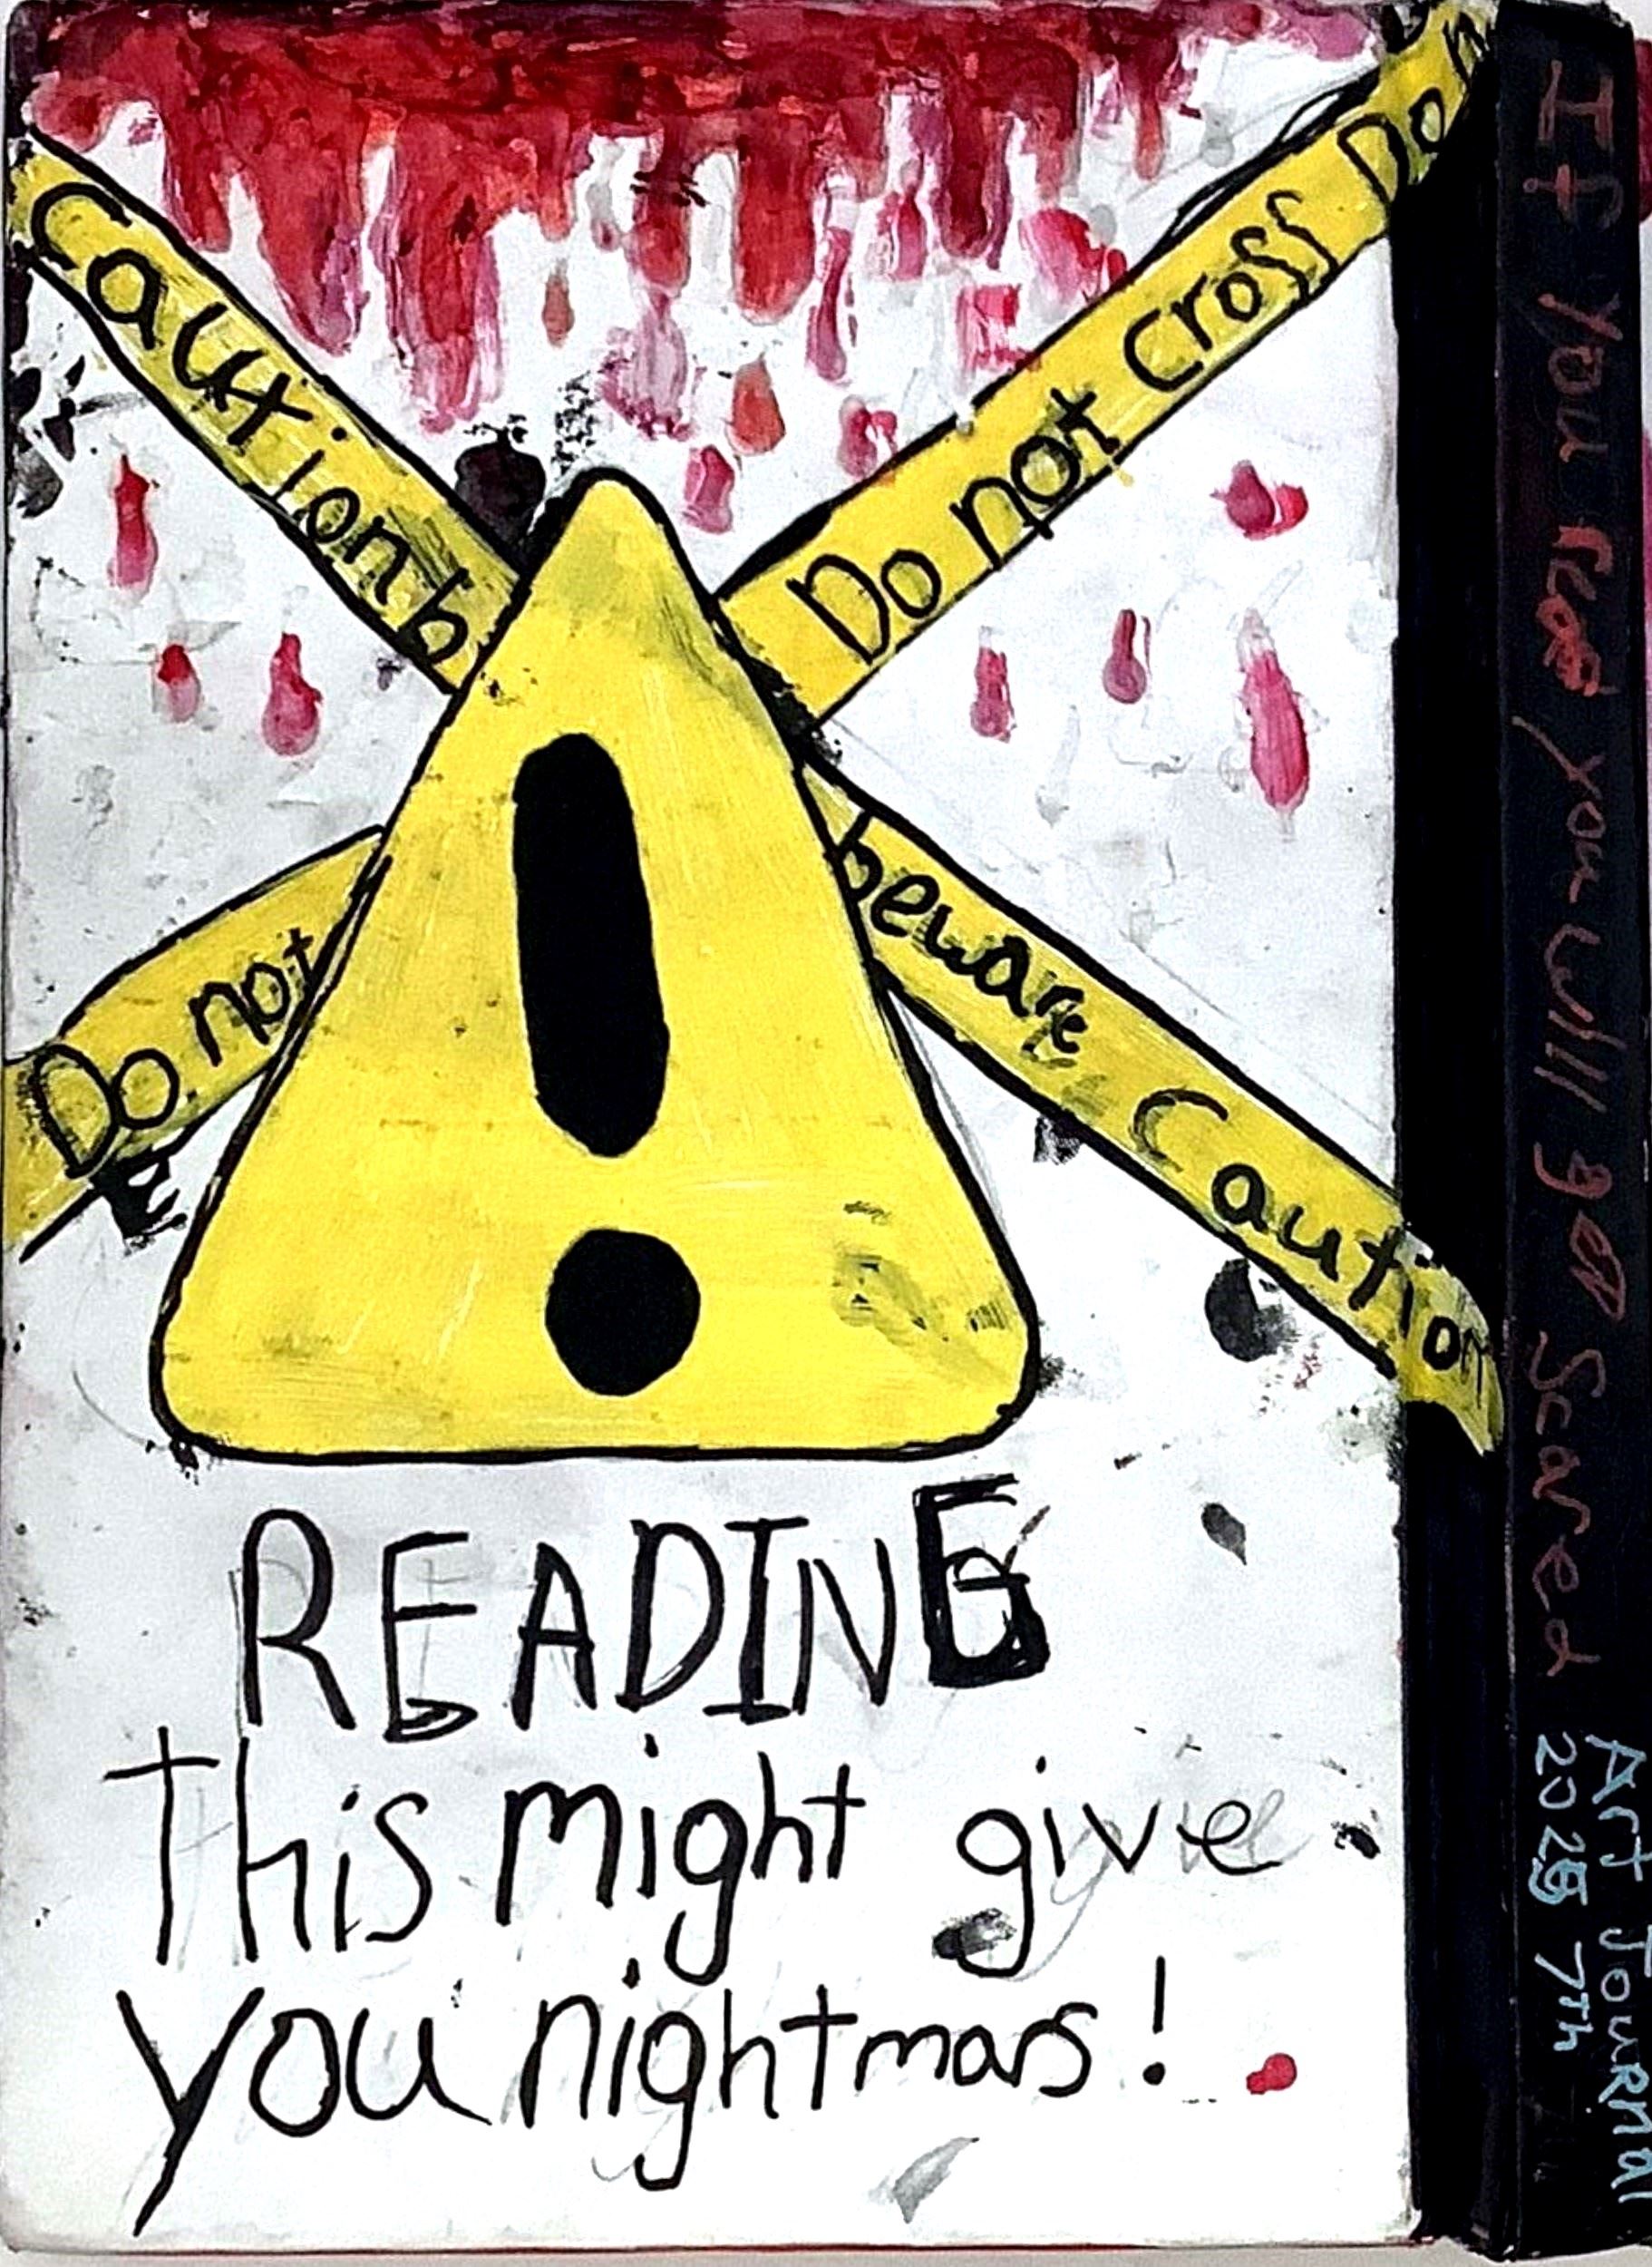 Caution b
Do not cross Don
Do not
beware Caution
READING
This might give
you nightmars!
If you read you will get Scared
Art Journal
2025 7th